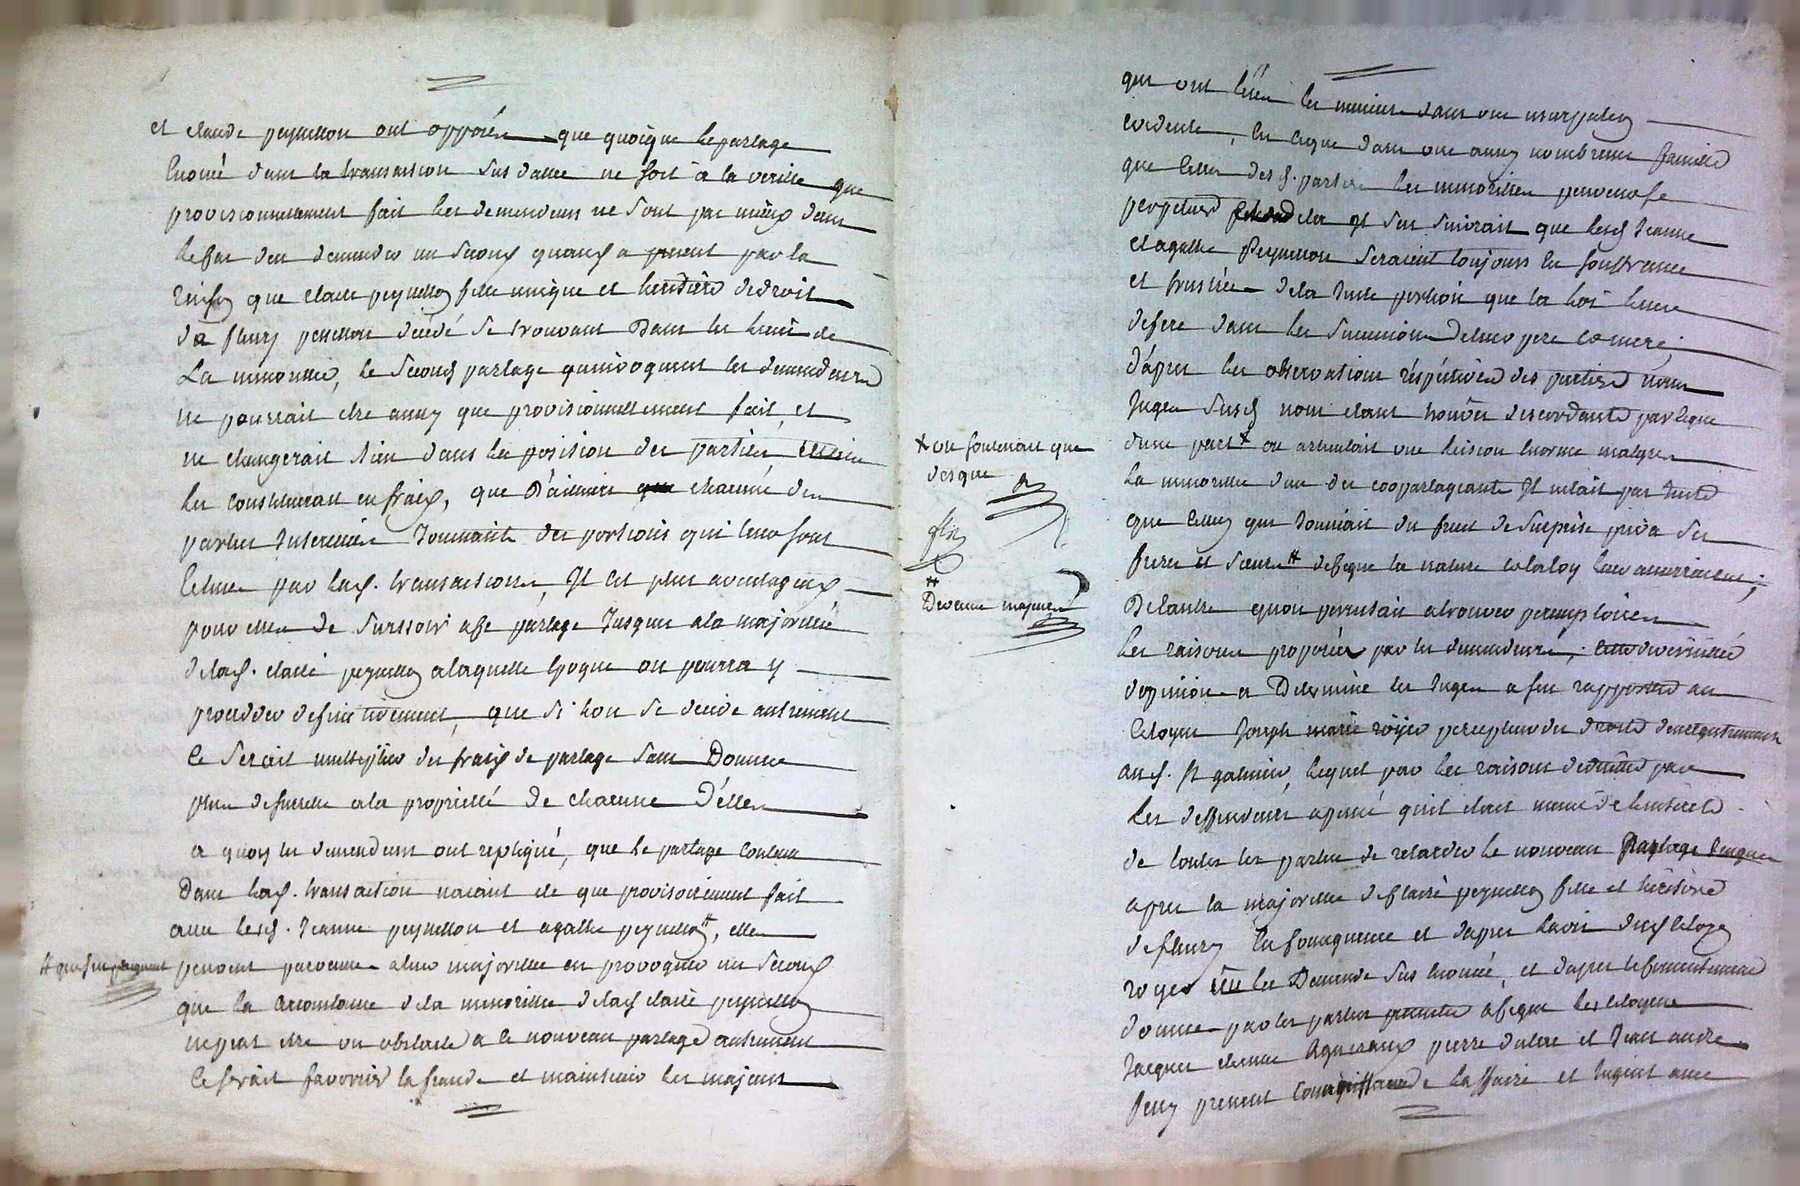 et claude peyneton ont opposés que quoique le partage
Enoncé dans la transaction Sus datée ne soit a la verité que
provisionnellement fait les demandeurs ne sont pas mieux dans
le cas den demander un Second quand a présent par la
raison que claire peyneton fille unique et heritière de droit
de fleury peneton décédé se trouvant Dans les liens de
La minorité, le Second partage quinvoquent les demandeurs
ne pourrait etre aussy que provisionnellement fait, et
ne changerait Rien dans la position des parties
les constituerait en fraix, que D'ailleurs chacune des
parties Interessées Jouissante des portions qui leur sont
echues par lad. transaction, Il est plus avantageux
pour elles de Surssoir a ce partage Jusques a la majorité
de lad. claire peyneton a laquelle Epoque on pourra y
proceder definitivement, que Si lon Se decide autrement
Ce Serait multiplier des fraix de partage Sans Donner
plus de a la proprieté de chacune D'elles
a quoy les demandeurs ont repliqué, que le partage contenu
Dans lad. transaction naiant ete que provisoirement fait
avec lesd. Jeanne peyneton et agathe peyneton #, elles
# qui s'en plaignent
peuvent parvenues a leur majorité en provoquer un Second
que la circonstance de la minorité de lad claire peyneton
ne peut etre un obstacle a ce nouveau partage autrement
Ce serait favoriser la fraude et maintenir les majeurs
qui ont lésés les mineurs dans une usurpation
evidente, En ce que dans une aussy nombreuse famille
que celle des d. parties les minorités peuvent se
perpetuer de la Il Sen Suivrait que lesd Jeanne
et agathe Peyneton Seraient toujours En souffrance
et frustrées de la Juste portion que la loi leur
defere dans les Successions de leurs pere et mere;
D'apres les observations réspectives des parties nous
Juges Susd nous etant trouvés discordants par ce que
d'une part x on articulait une lésion Enorme malgré
x on soutenait que
des que
la minorité d'un des copartageants Il n'etait pas Juste
que celuy qui Jouissait du fruit de Surprise priva Ses
freres et Sœurs # de ce que la nature et la loy leur assuraient;
#
Devenus majeurs
De l'autre quon persistait a trouver peremptoires
les raisons proposées par les demandeurs, cette diversité
d'opinion a Determiné les Juges a s'en rapporter au
Citoyen Joseph marie royer percepteur des droits d'enregistrement
aud. St galmier, lequel par les raisons deduites par
les deffendeurs a pensé quil etait meme de l'interet
de toutes les parties de retarder le nouveau Partage Jusques
apres la majorité de Claire peyneton fille et heritière
de fleury En consequence et dapres l'avis dud Citoyen
royer Vu les Demande Sus Enoncée, et dapres le consentement
donné par les parties a ce que les Citoyens
Jacques etienne pierre et Jean andre
peuvent la ffaire et Jugent avec